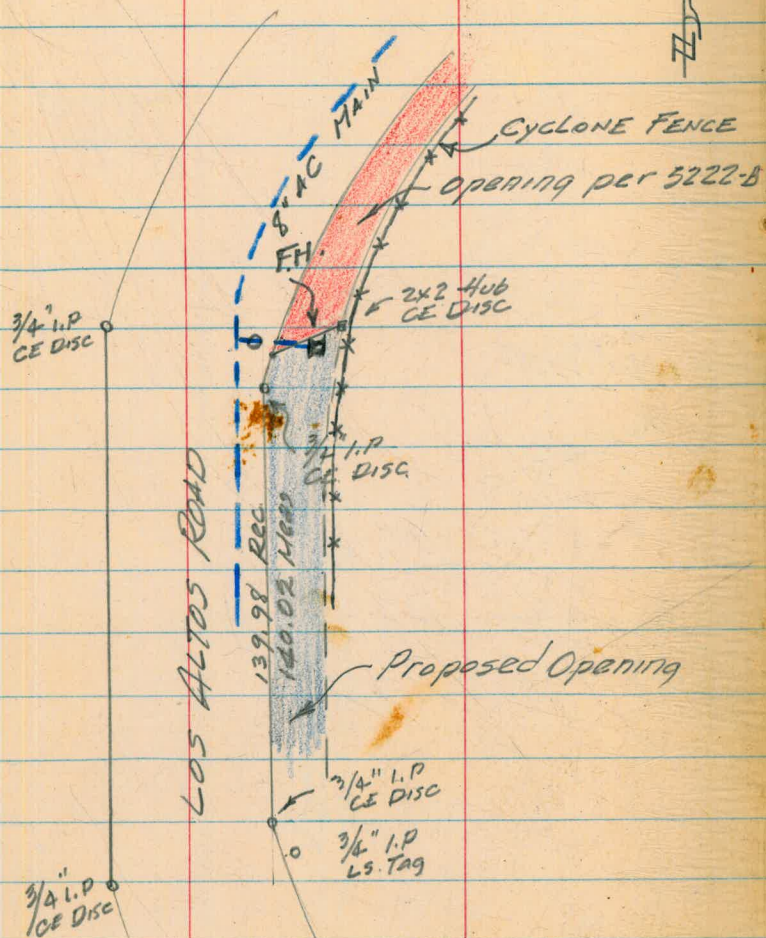 8" AC MAIN
CYCLONE FENCE
opening per 5222-B
F.H.
2x2 Hub
CE DISC
3/4" I.P
CE DISC
3/4" I.P
CE DISC
LOS ALTOS ROAD
139.98 Rec
140.02 Meas
Proposed Opening
3/4" I.P
CE DISC
3/4" I.P
LS. Tag
3/4" I.P
CE DISC